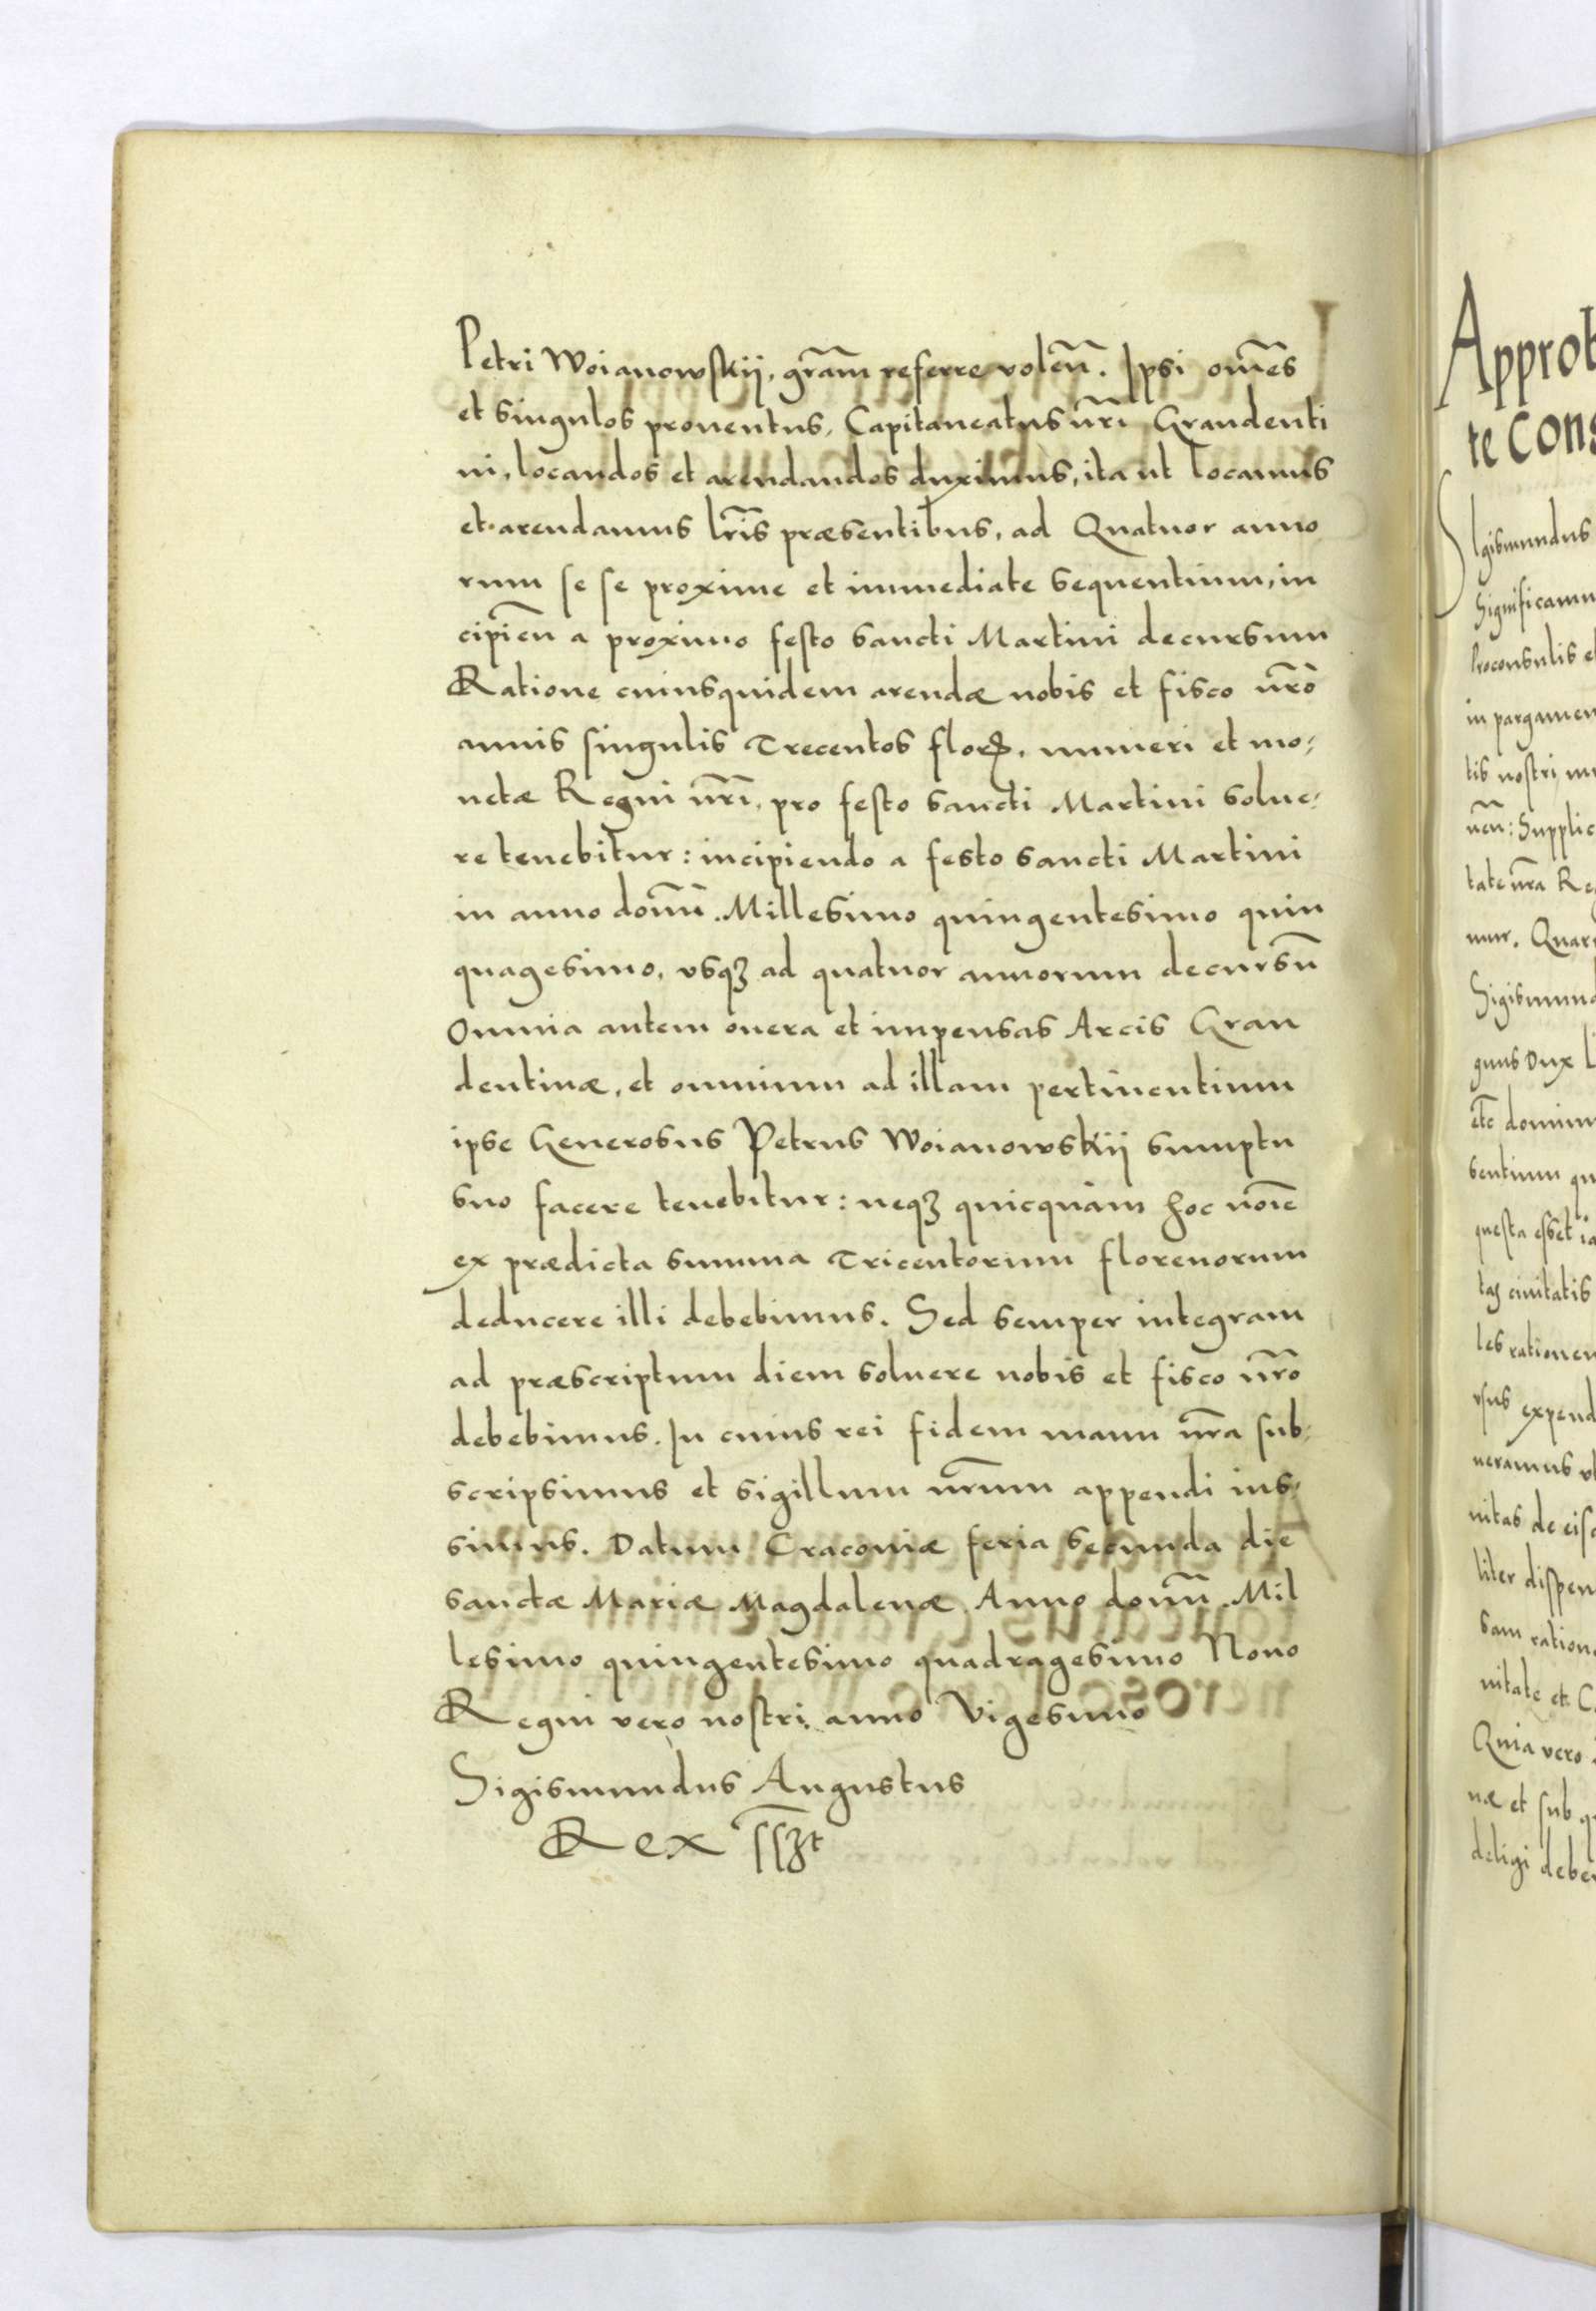 Petri Woianowskij, gr̃am referre volen̄. Ipsi om̄es
et singulos prouentus, Capitaneatus nr̃i Graudenti
ni, locandos et arendandos duximus, ita ut locamus
et arendamus lr̃is præsentibus, ad Quatuor anno
rum se se proxime et immediate sequentium, in
cipien̄ a proximo festo sancti Martini decursum
Ratione cuiusquidem arendæ nobis et fisco nr̃o
annis singulis Trecentos flor., numeri et mo,
netæ Regni nr̃i, pro festo sancti Martini solue,
re tenebitur: incipiendo a festo sancti Martini
in anno domn̄. Millesimo quingentesimo quin
quagesimo, vsqꝫ ad quatuor annorum decursū
Omnia autem onera et impensas Arcis Grau
dentinæ, et omnium ad illam pertinentium
ipse Generosus Petrus Woianowskij sumptu
suo facere tenebitur: neqꝫ quicquam hoc noīe
ex prædicta summa Tricentorum florenorum
deducere illi debebimus. Sed semper integram
ad præscriptum diem soluere nobis et fisco nr̃o
debebimus. In cuius rei fidem manu nr̃a sub,
scripsimus et sigillum nr̃um appendi ius,
simus. Datum Cracouiæ feria secunda die
sanctæ Mariæ Magdalenæ Anno domn̄. Mil
lesimo quingentesimo quadragesimo Nono
Regni vero nostri anno Vigesimo
Sigismundus Augustus
Rex
Approb
te Cons
Sigismundus
Significamu
Proconsulis et
in pargamen
tis nostri
nen̄: Supplic
tate nr̃a Re
mur. Quar
Sigismund
gnus Dux Li
etc̃ domin
sentium qu
questa esset ia
tas ciuitatis
les rationem
vsus expend
ueramus
uitas de eis
liter dispen
sam ration
uitate et C
Quia vero
næ et sub q
deligi debe